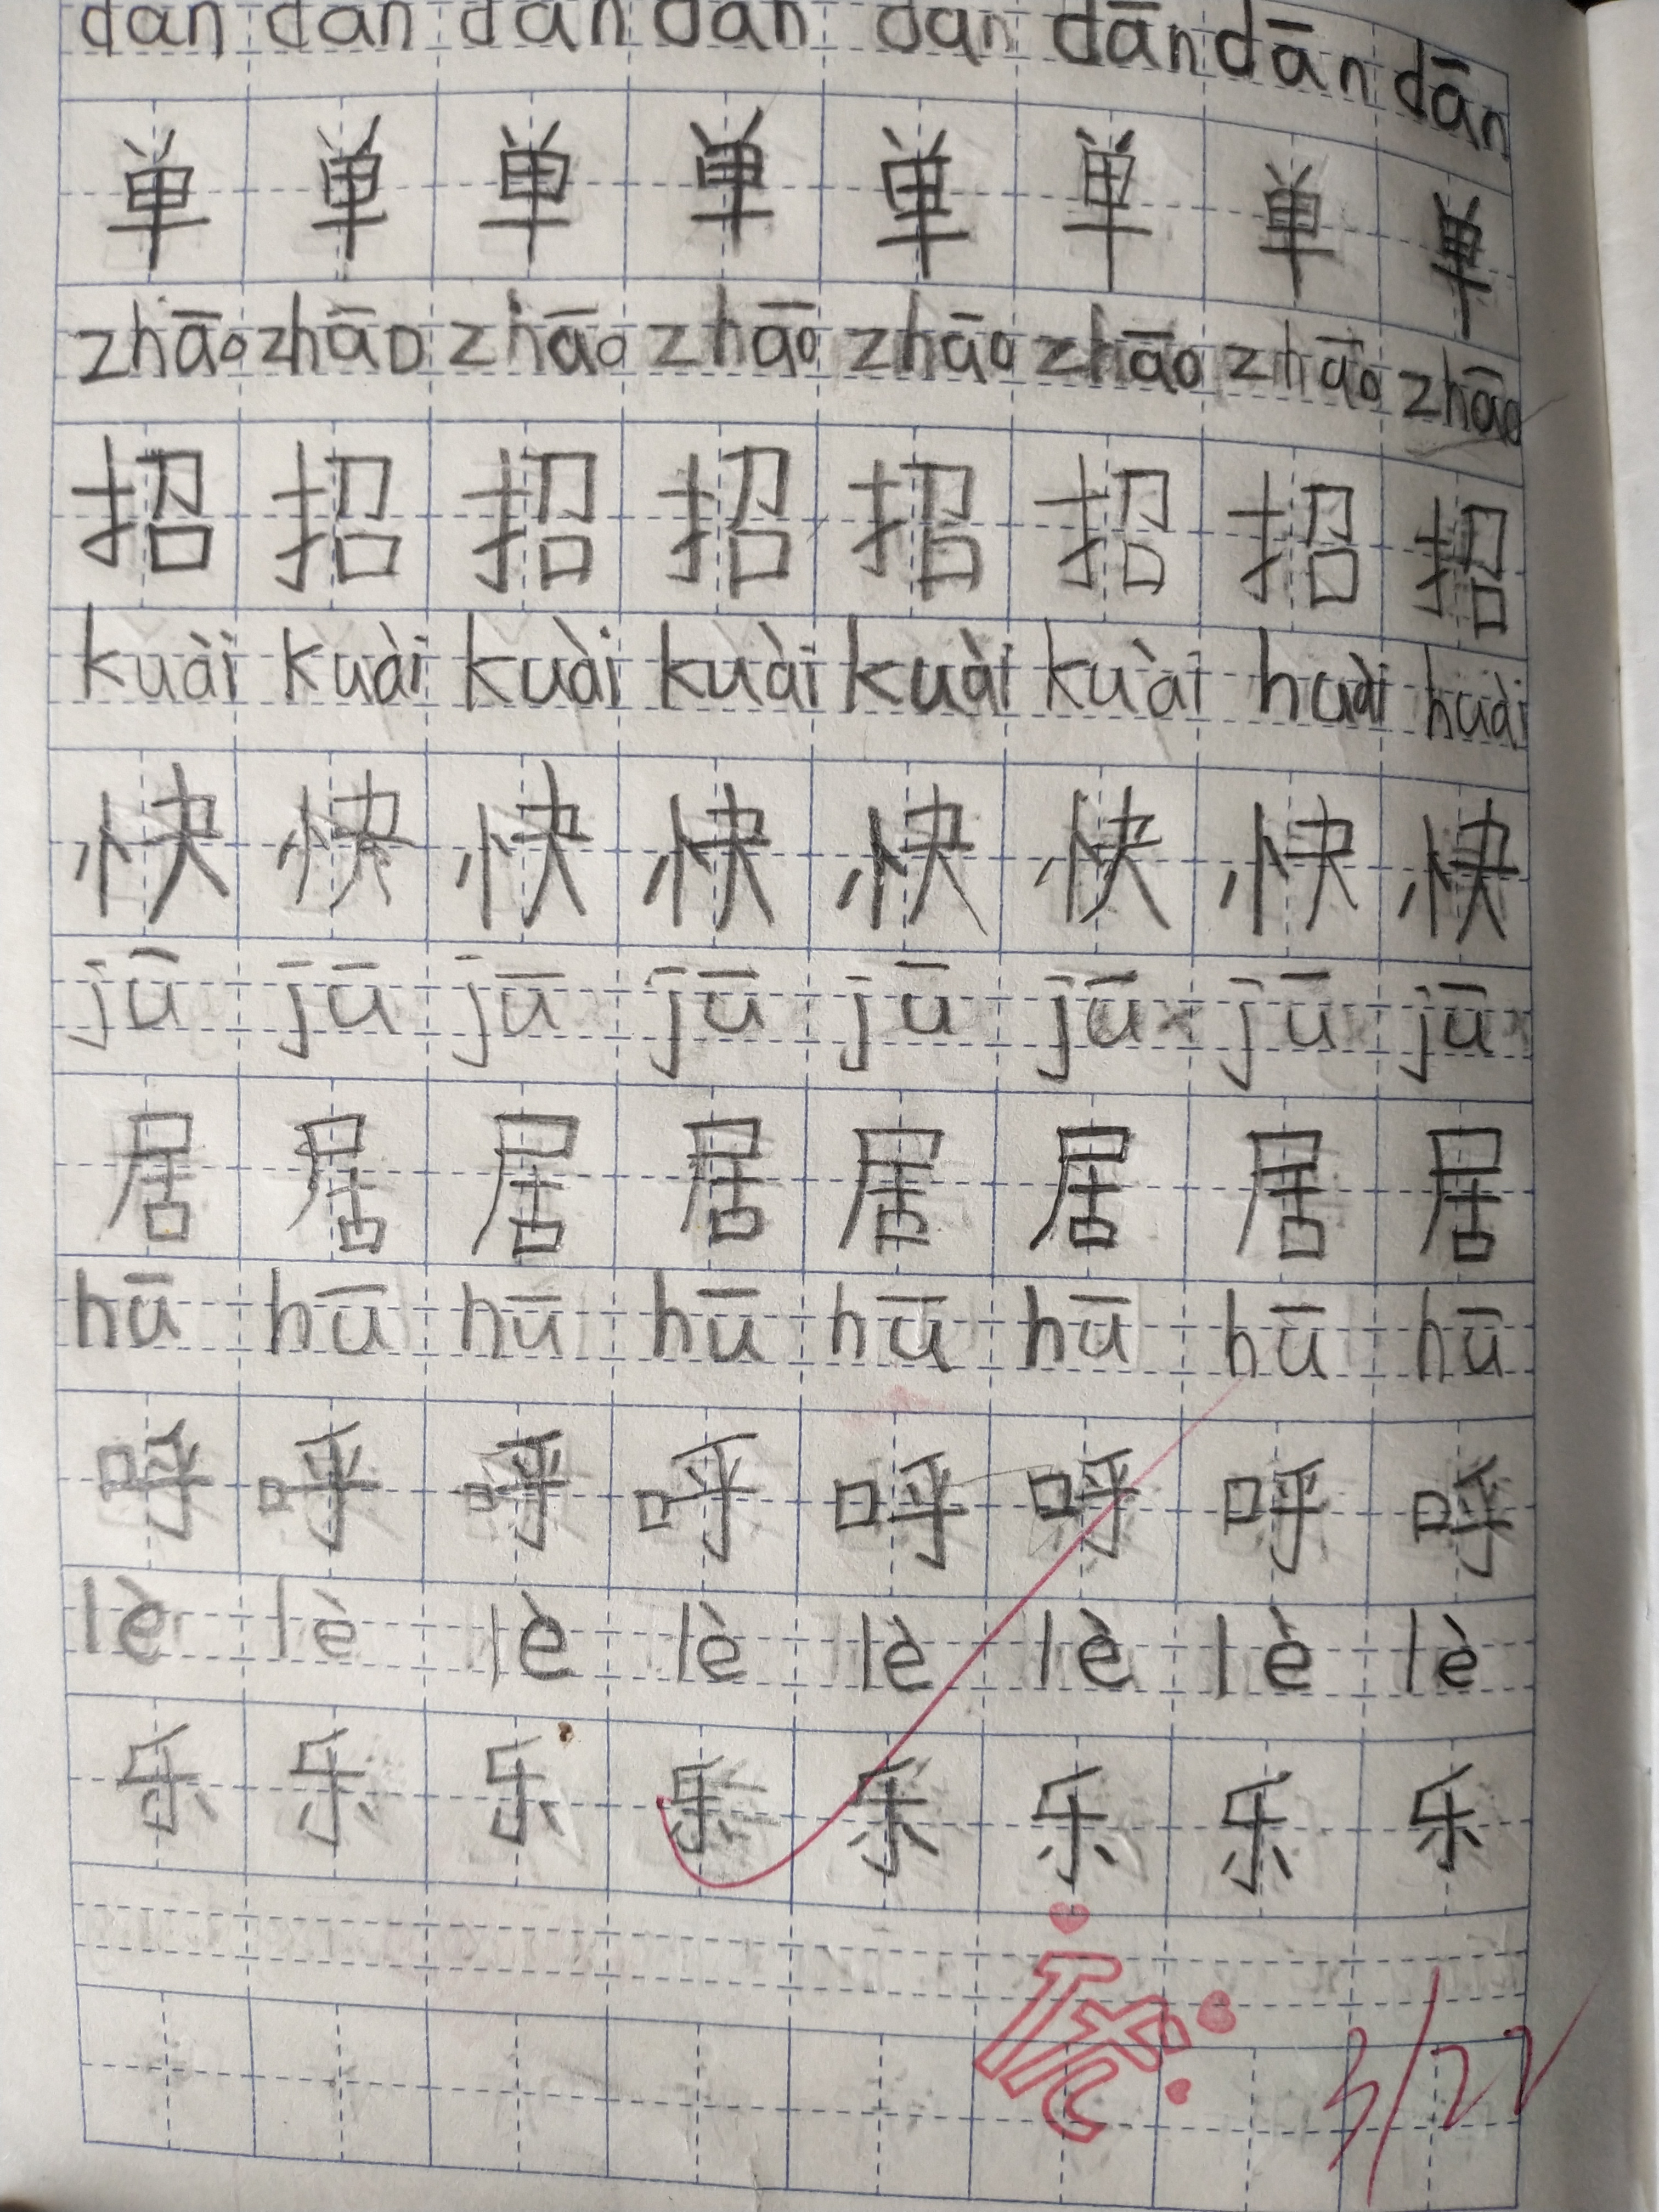 dān dān dān dān dān dān dān dān
单 单 单 单 单 单 单 单
zhāo zhāo zhāo zhāo zhāo zhāo zhāo zhāo
招 招 招 招 招 招 招 招
kuài kuài kuài kuài kuài kuài huài huài
快 快 快 快 快 快 快 快
jū jū jū jū jū jū jū jū
居 居 居 居 居 居 居 居
hū hū hū hū hū hū hū hū
呼 呼 呼 呼 呼 呼 呼 呼
lè lè lè lè lè lè lè lè
乐 乐 乐 乐 乐 乐 乐 乐
优
3/22